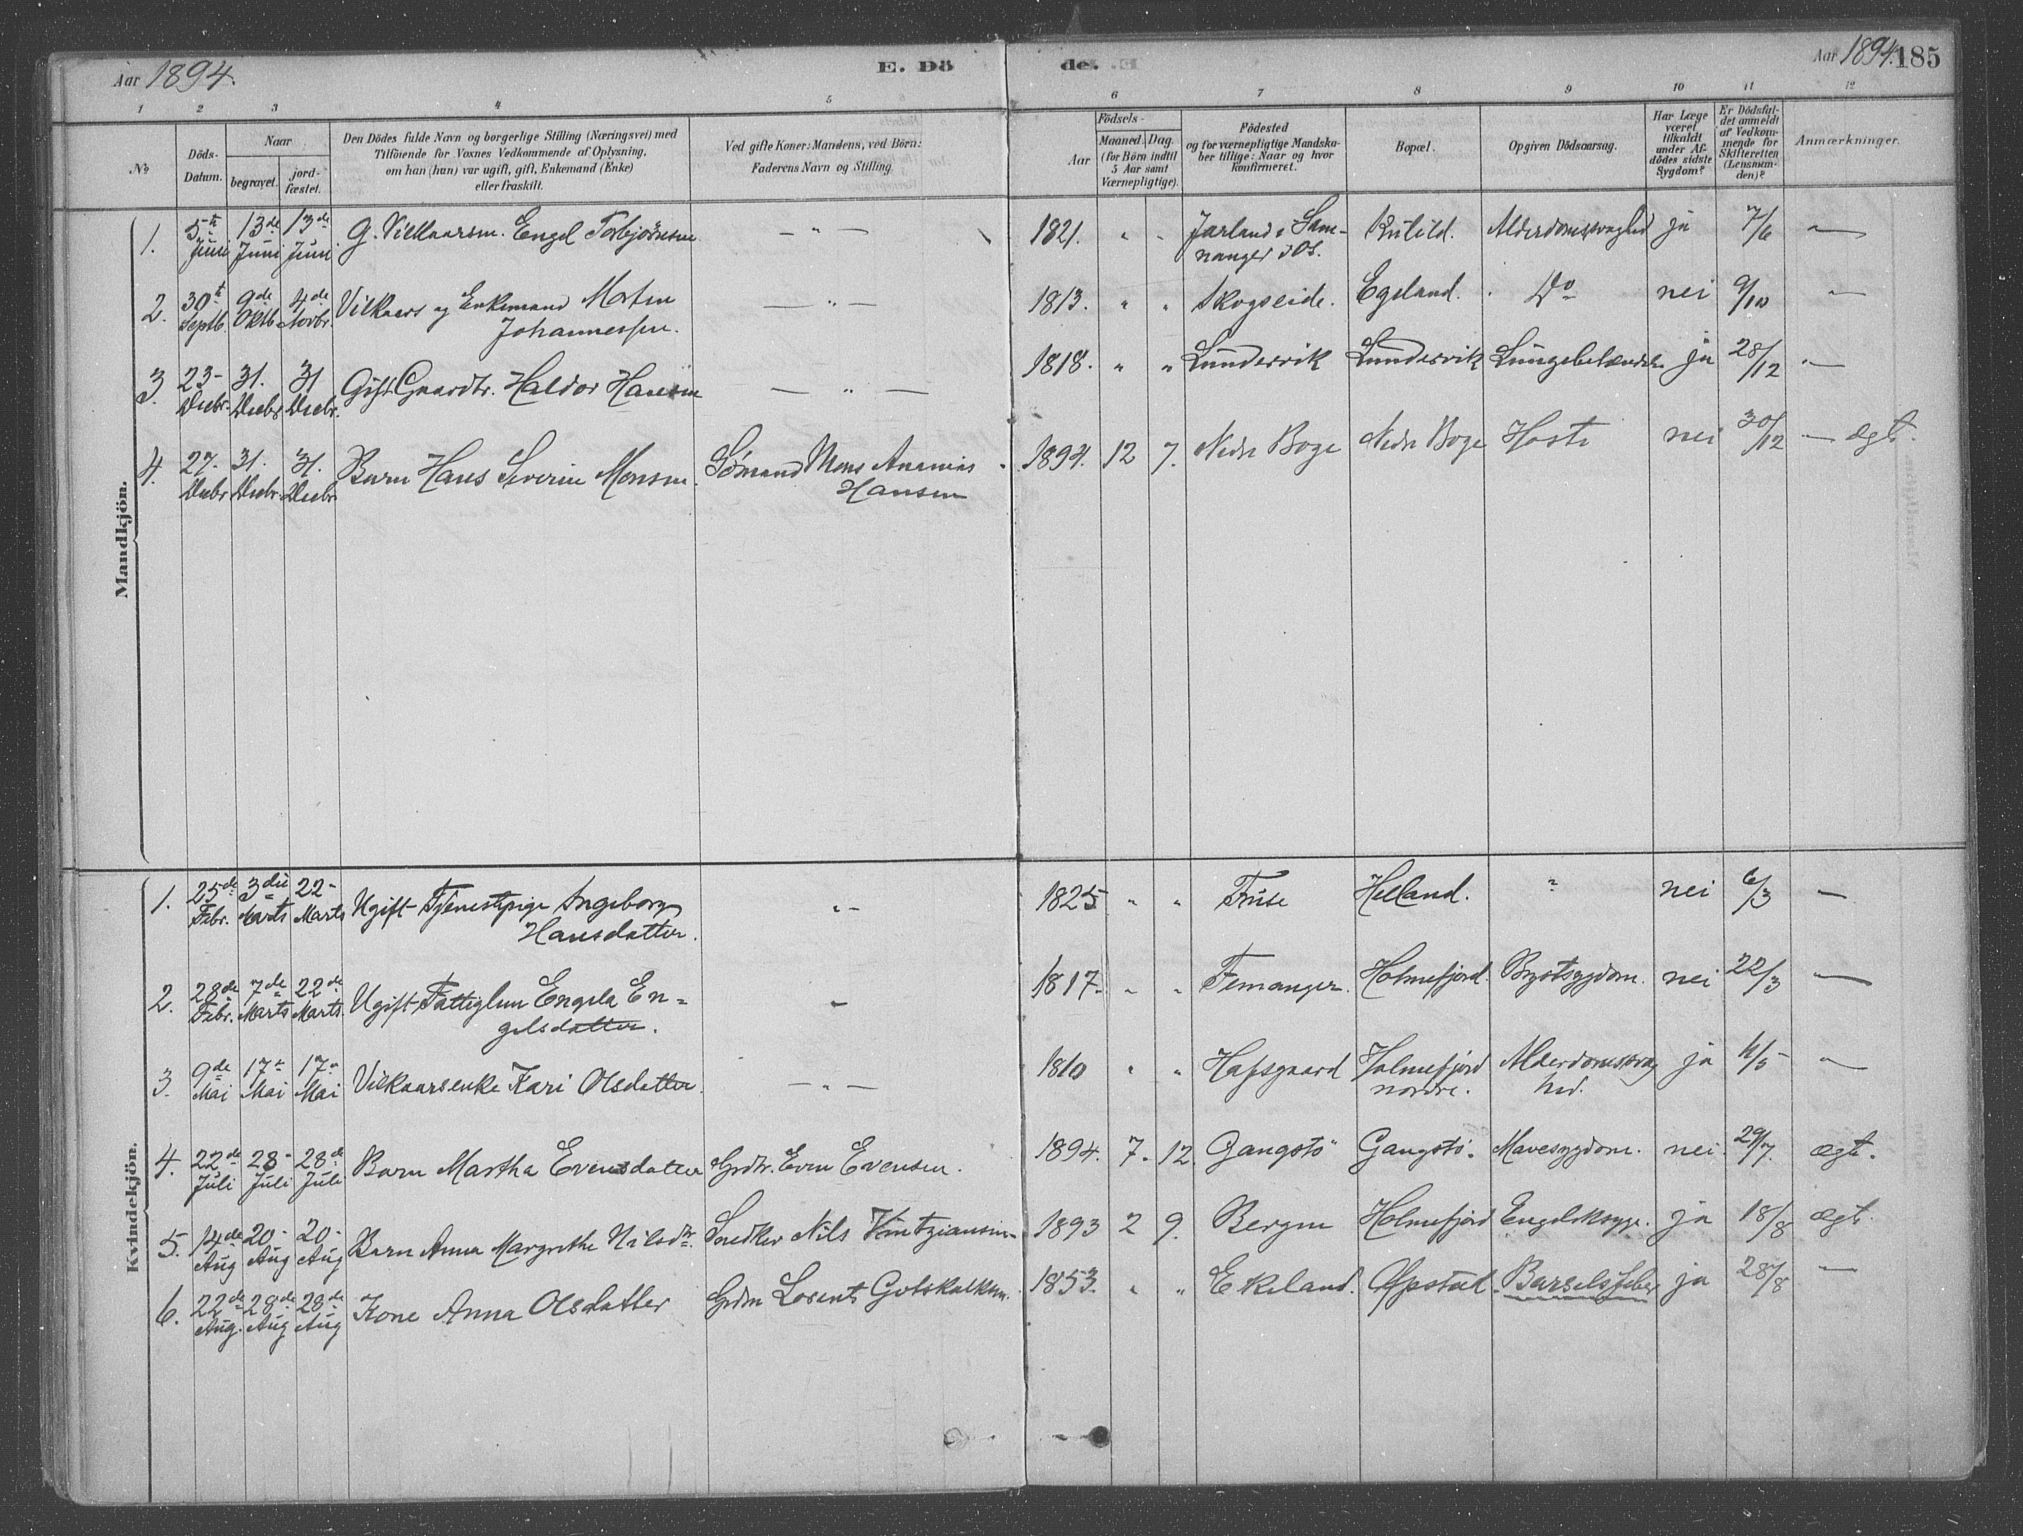 Aar 1894. E. Dö
de. Aar 1894. 185
1 2 3 4 5 6 7 8 9 10 11 12
No
Döds-
Datum.
Naar
begravet. jord-
fæstet.
Den Dödes fulde Navn og borgerlige Stilling (Næringsvei) med
Tilföiende for Voxnes Vedkommende af Oplysning,
om han (hun) var ugift, gift, Enkemand (Enke)
eller fraskilt.
Ved gifte Koner: Mandens, ved Börn:
Faderens Navn og Stilling.
Födsels-
Aar Maaned. Dag.
(for Börn indtil
5 Aar samt
Værnepligtige).
Födested
og for værnepligtige Mandska-
ber tillige: Naar og hvor
konfirmeret.
Bopæl.
Opgiven Dödsaarsag.
Har Læge
været
tilkaldt
under Af-
dödes sidste
Sygdom?
Er Dödsfal-
det anmeldt
af Vedkom-
mende for
Skifteretten
(Lensman-
den)?
Anmærkninger.
Mandkjön.
1. 5te Juni 13de Juni 13de Juni G. Vilkaarsm. Engel Torbjørnsen — " — 1821. " " Jarland i Sam-
nanger i Os. Alderdomssvaghed ja 7/6 —
2. 30te Septb. 9de Oktb. 4de Novbr. Vilkaars og Enkemand Morten
Johannessen. — " — 1813. " " Skogseide. Egeland. Do nei 9/10 —
3. 23- Decbr. 31. Decbr. 31 Decbr. Gift Gaardbr. Haldor Hansen — " — 1818. " " Lundervik Lundervik Lungebetændelse ja 28/12 —
4. 27. Decbr. 31. Decbr. 31. Decbr. Barn Hans Severin Monsen. Sømand Mons Ananias
Hansen 1894. 12 7. Nedre Boge Nedre Boge Hoste nei 30/12 — Ægt.
Kvindekjön.
1. 25de Febr. 3die Marts 22- Marts Ugift Tjenestpige Ingeborg
Hansdatter. " — 1825 " " Fuse Helland. " nei 6/3 —
2. 28de Febr. 7de Marts 22de Marts. Ugift Fattiglem Engela En-
gelsdatter. — 1817. " " Femanger. Holmefjord. Brystsygdom. nei 22/3 —
3. 9de Mai 17de Mai 17de Mai Vilkaarsenke Kari Olsdatter. — " — 1810 " " Hafsgaard Holmefjord
nordre. Alderdomssvag
hed. ja —
4. 22de Juli 28- Juli 28de Juli Barn Martha Evensdatter Grdbr. Even Evensen. 1894. 7. 12. Gangstö Gangstö. Mavesygdom. nei 29/7. ægt.
5. 14de Aug 20- Aug 20- Aug Barn Anna Margrethe Nilsdtr. Snedker Nils 1893 2 9. Bergen Holmefjord Engelsksyge. ja 18/8 Ægt.
6. 22de Aug. 28de Aug 28de Aug Kone Anna Olsdatter Grdm Lorents Gotskalksen. 1853. " " Ekeland. Øpstad. Barselsfeber ja 28/8 —